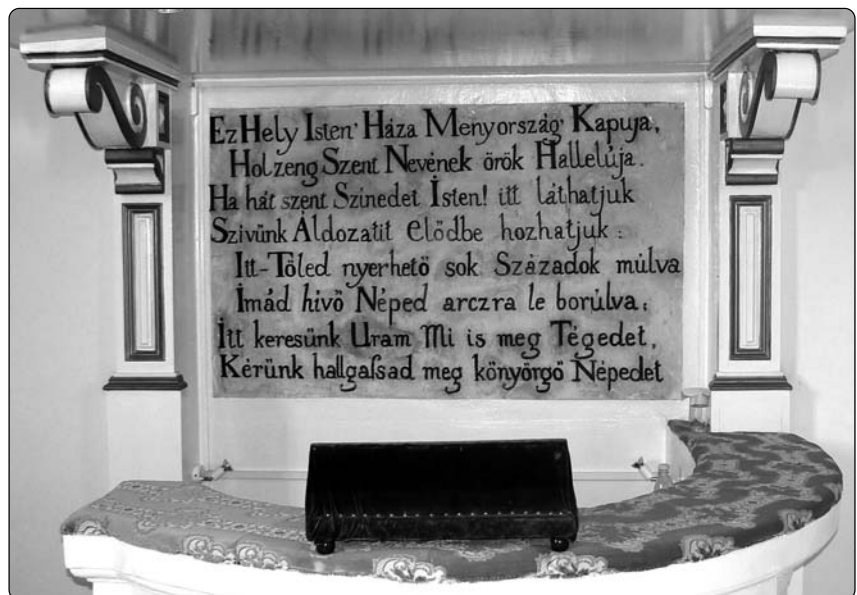 Ez Hely Isten' Háza Menyország' Kapuja,
Hol zeng Szent Nevének örök Hallelúja.
Ha hát szent Szinedet Isten! itt láthatjuk
Szivünk Áldozatit Elödbe hozhatjuk :
Itt-Töled nyerhetö sok Századok múlva
Imád hivö Néped arczra le borúlva;
Itt keresünk Uram Mi is meg Tégedet,
Kérünk hallgaſsad meg könyörgö Népedet